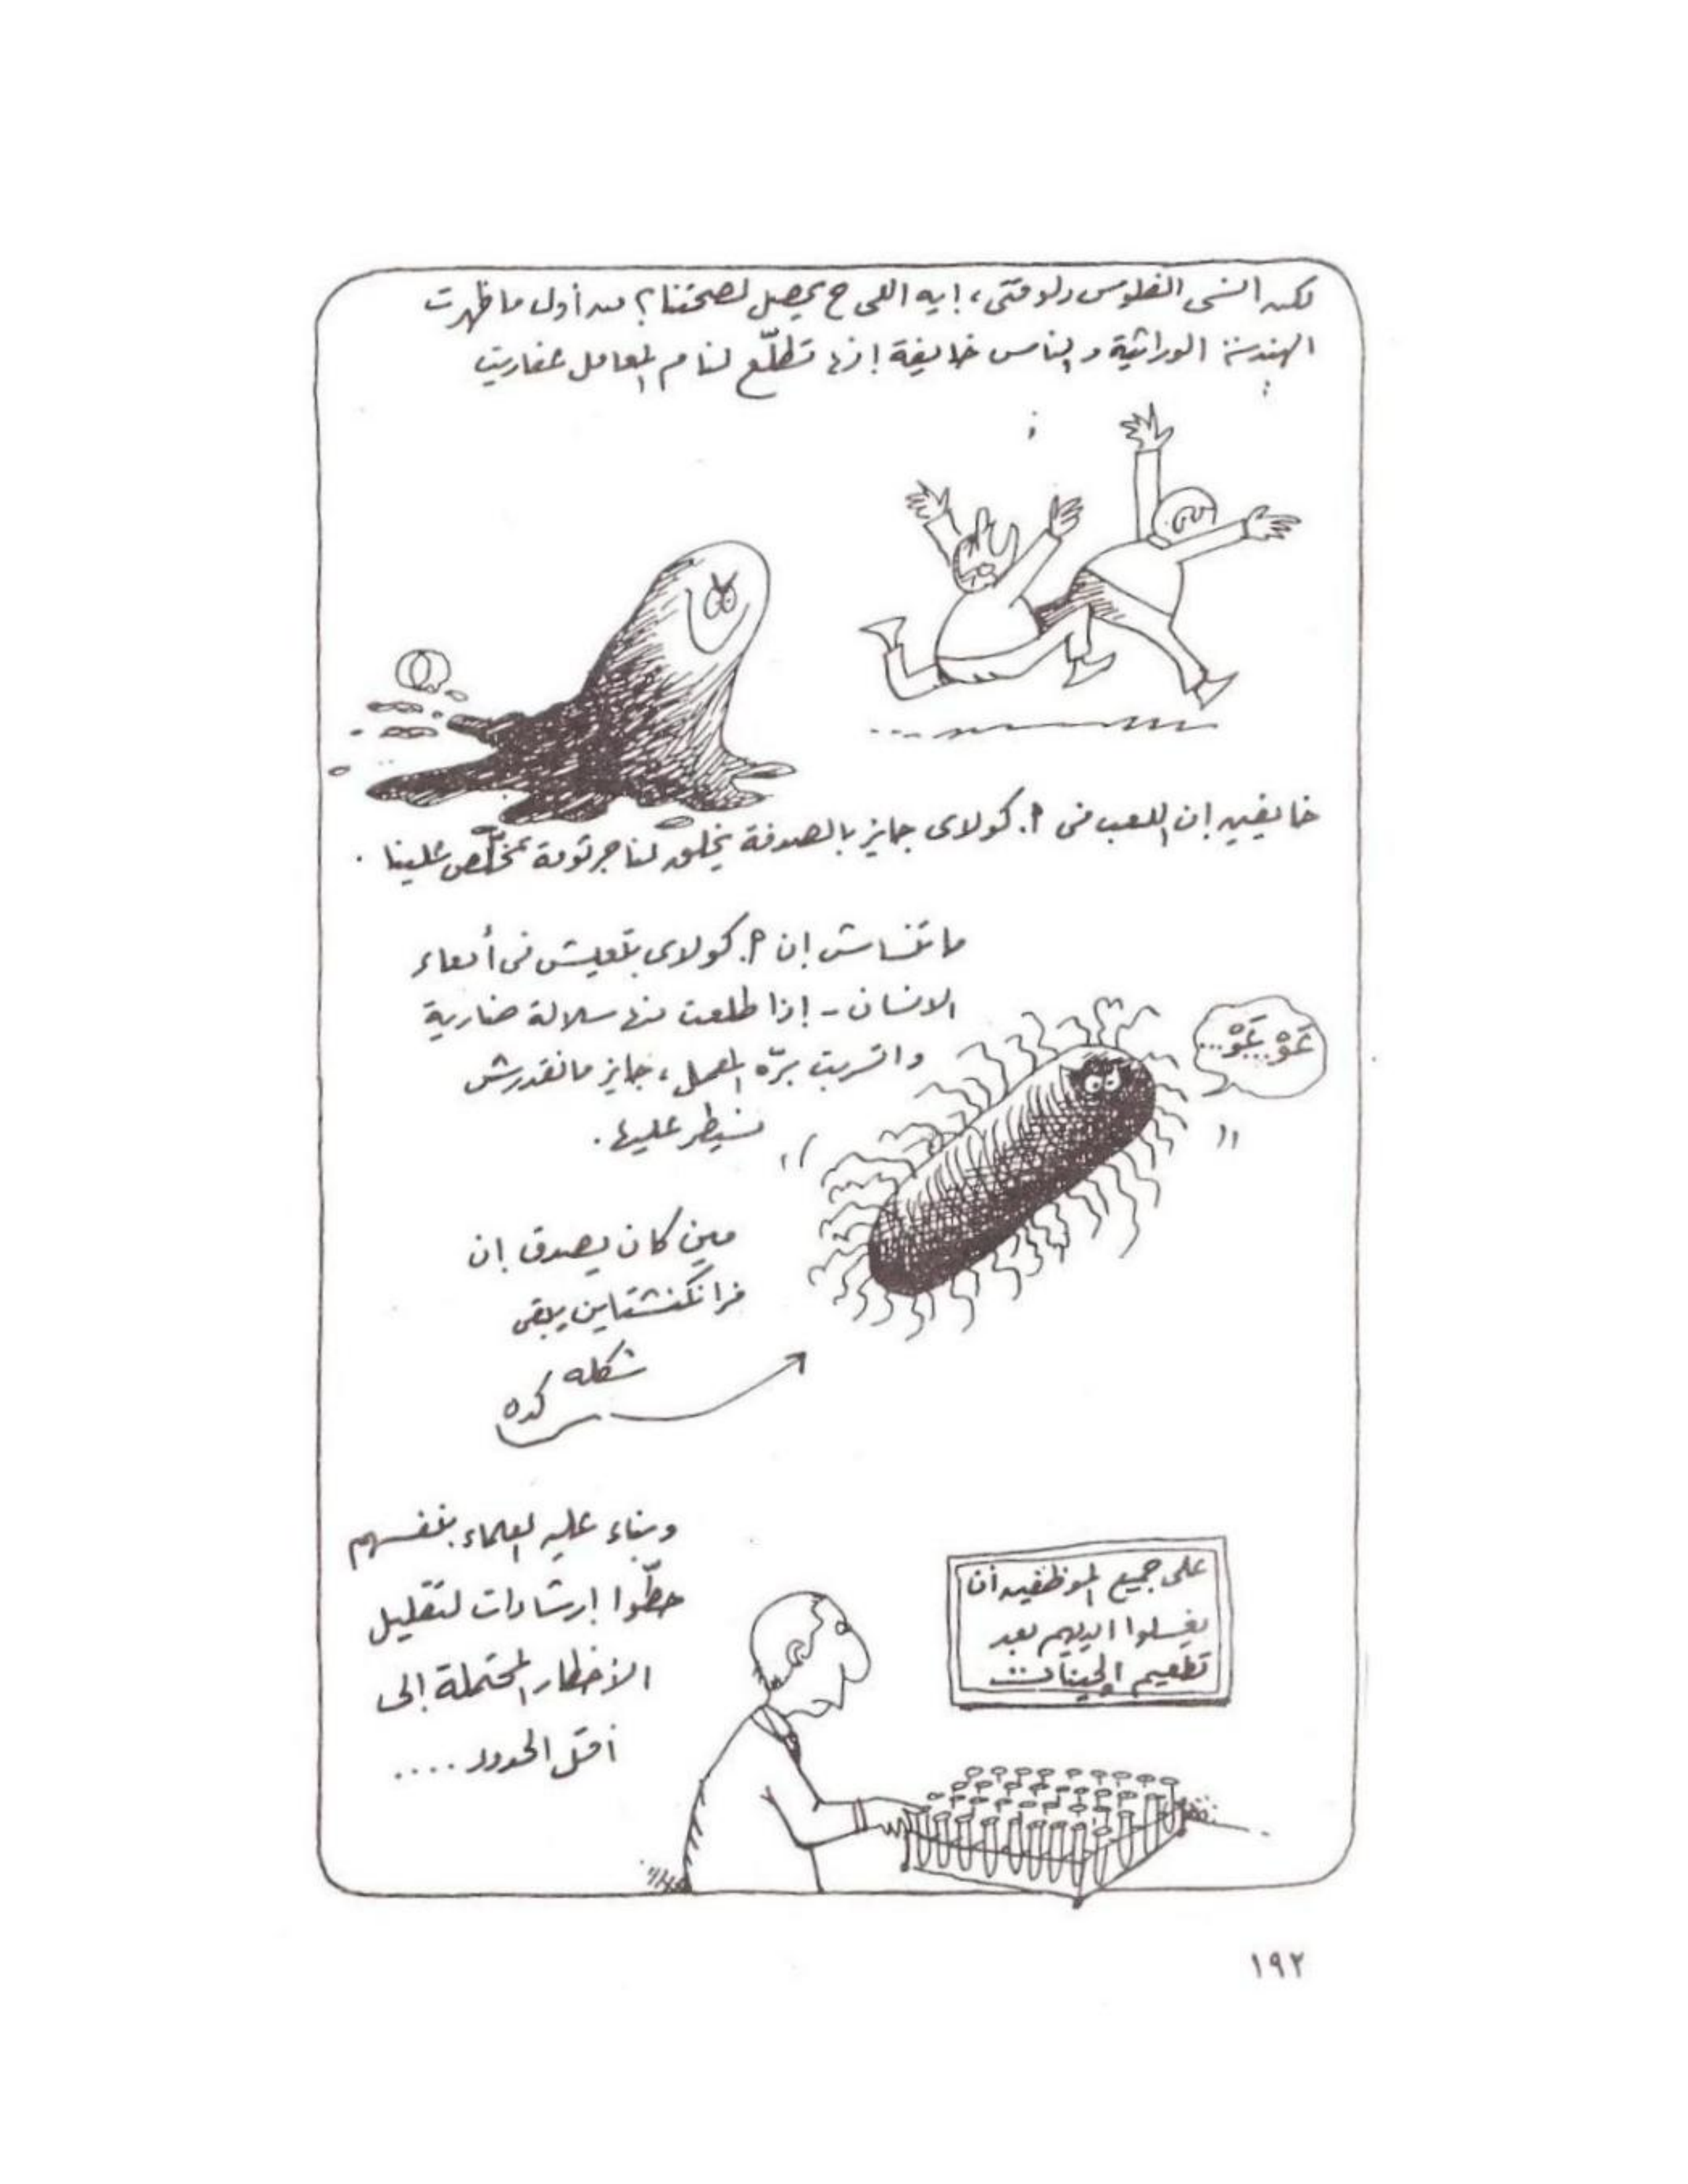 لكن انسى الفلوس دلوقتى، إيه اللى ح يحصل لصحتنا؟ من أول ما ظهرت
الهندسة الوراثية والناس خايفة إنها تطلّع لنا م المعامل عفاريت
خايفين إن اللعب فى أ. كولاى جايز بالصدفة يخلق لنا جرثومة تخلّص علينا.
ما تنساش إن أ. كولاى بتعيش فى أمعاء
الانسان - إذا طلعت منها سلالة ضارية
واتسربت برّه المعمل، جايز مانقدرش
نسيطر عليها.
عَوْ..عَوْ...
مين كان يصدق إن
فرانكنشتاين يبقى
شكله كده
وبناء عليه العلماء بنفسهم
حطّوا إرشادات لتقليل
الأخطار المحتملة إلى
أقل الحدود....
على جميع الموظفين أن
يغسلوا ايديهم بعد
تطعيم الجينات
١٩٢